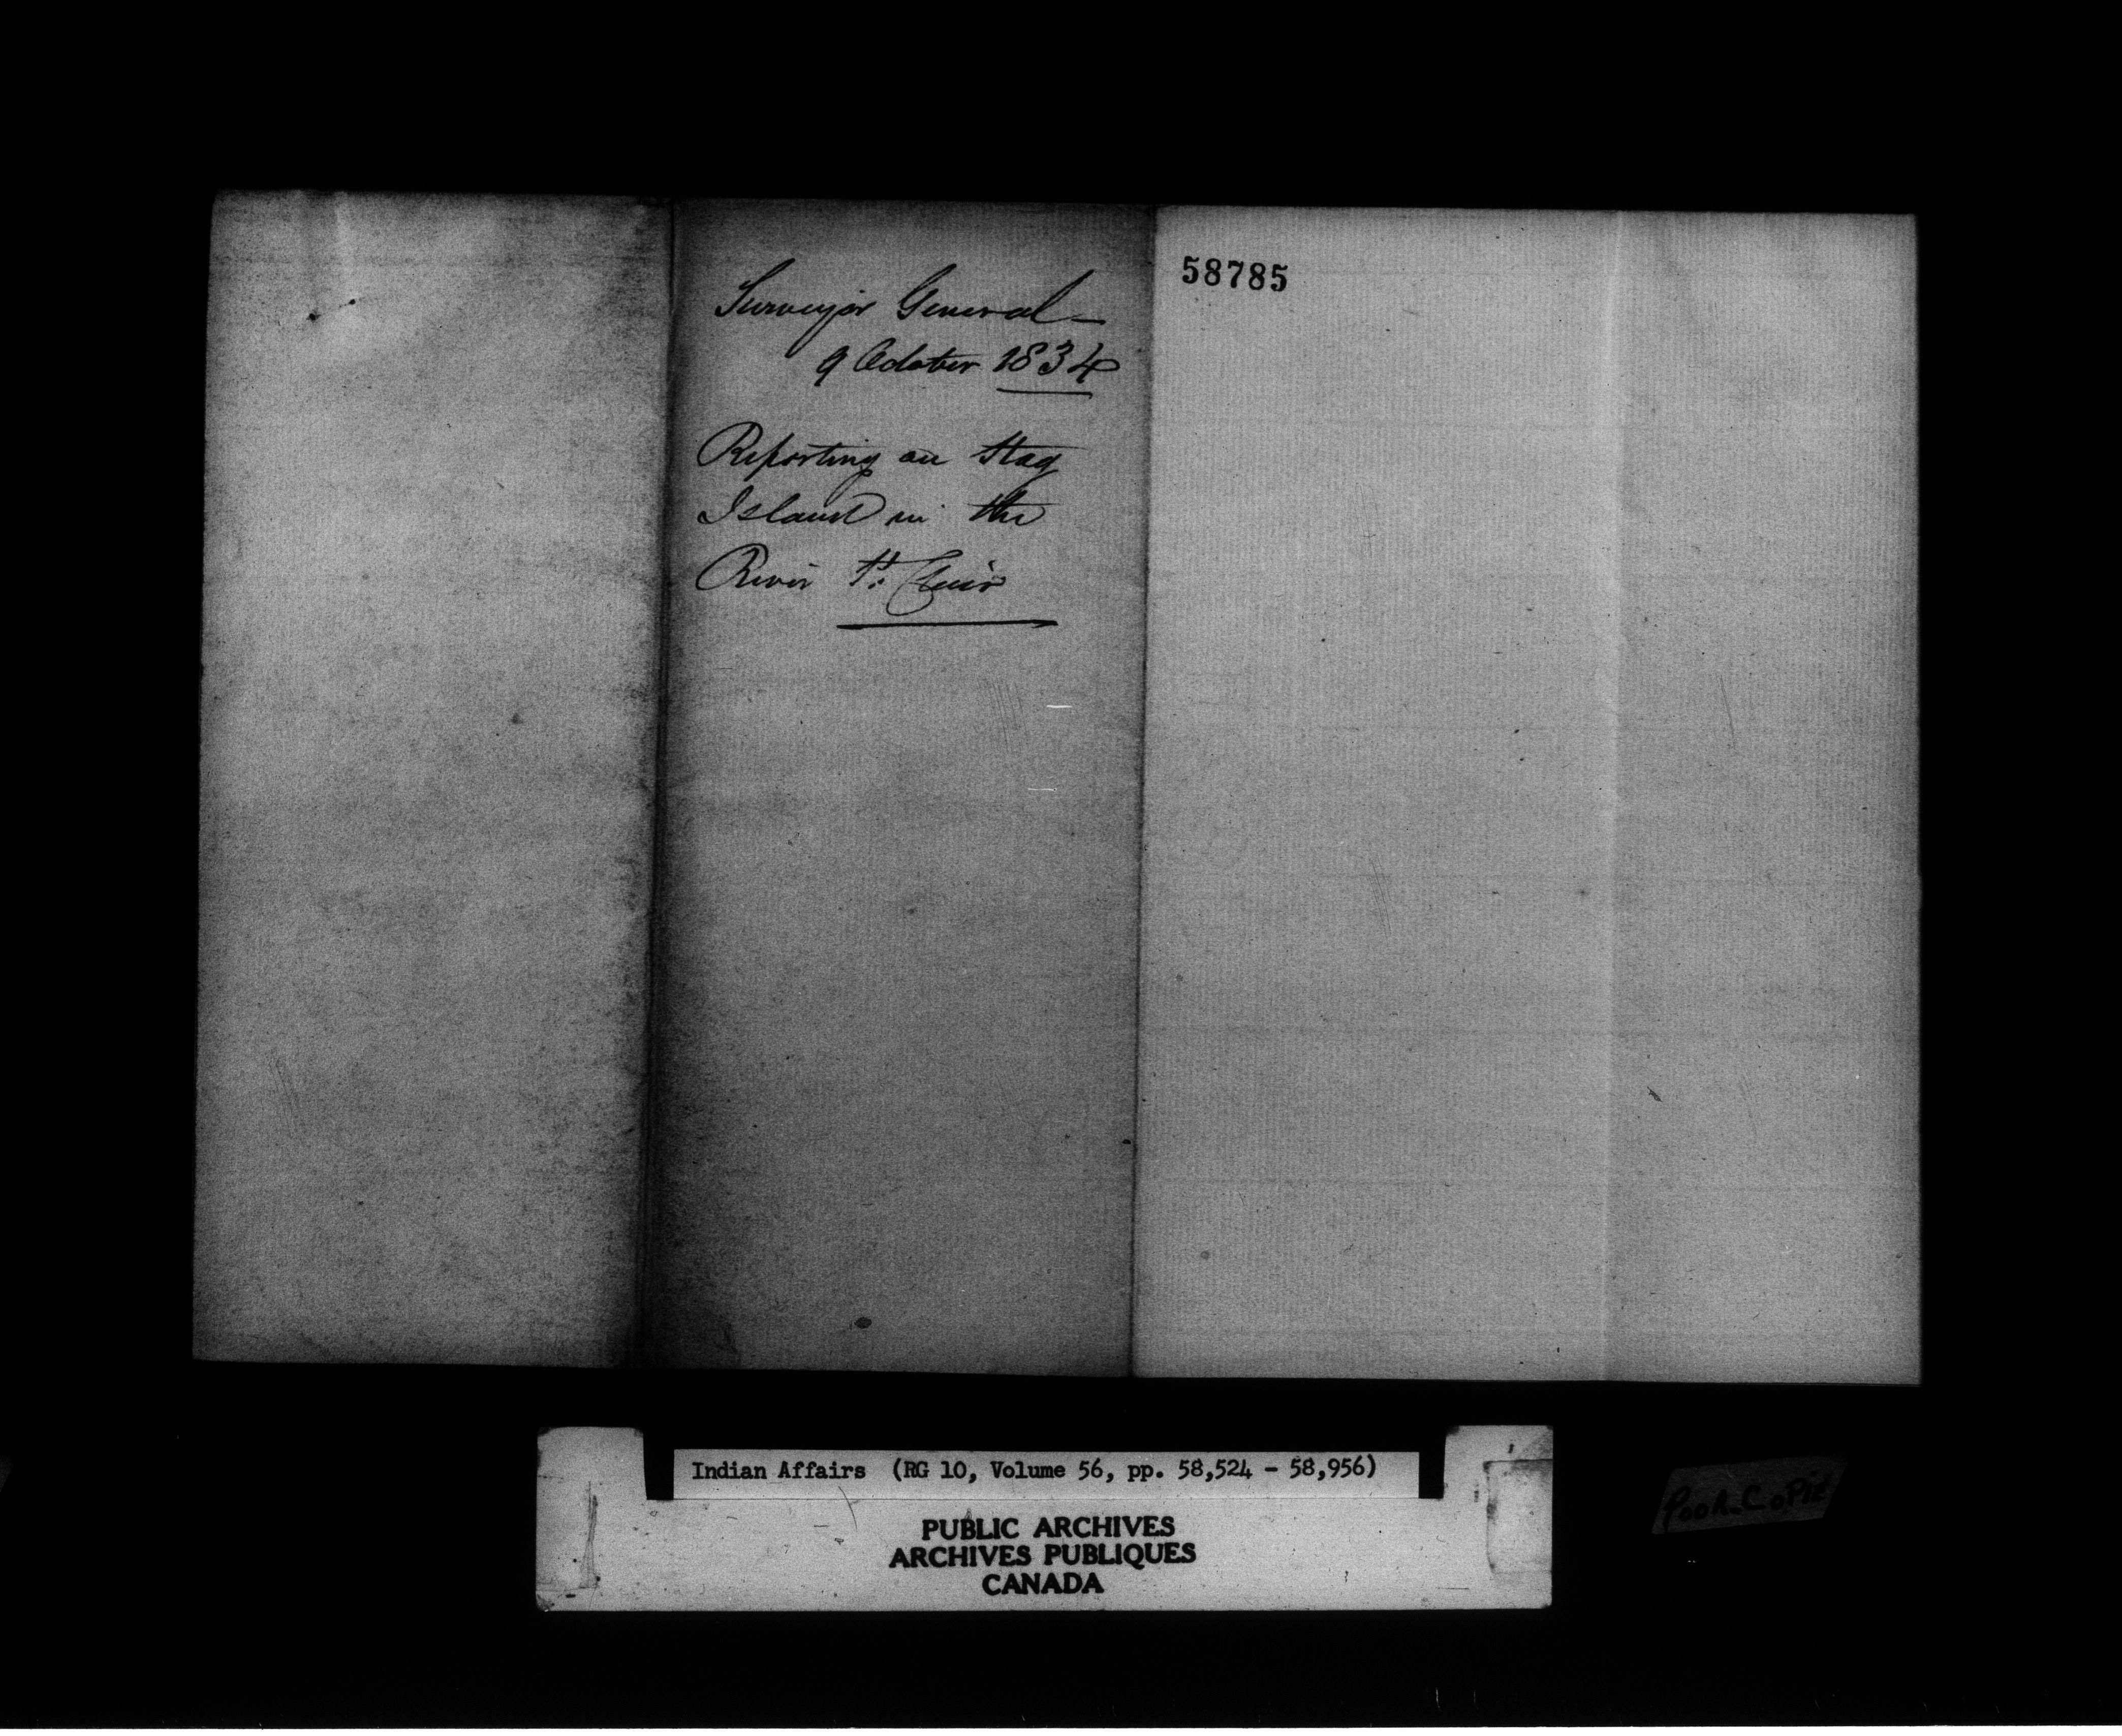 Surveyor General –
9 October 1834
Reporting on Stag
Island in the
River St. Clair
58785
Indian Affairs (RG 10, Volume 56, pp. 58,524 – 58,956)
PUBLIC ARCHIVES
ARCHIVES PUBLIQUES
CANADA
Poor Copie